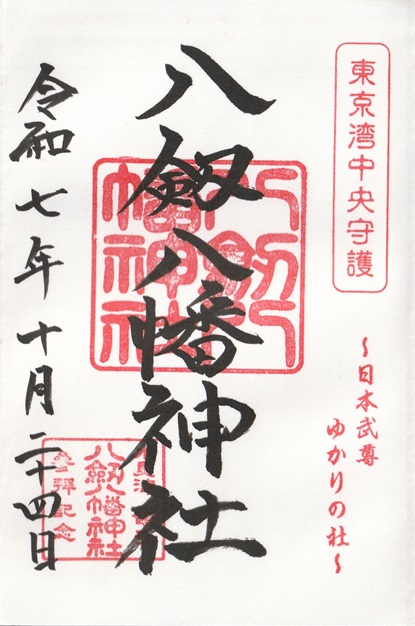 東京湾中央守護
〜日本武尊
ゆかりの社〜
八剱八幡神社
八剱八幡神社
令和七年十月二十四日
八剱八幡神社
参拝記念